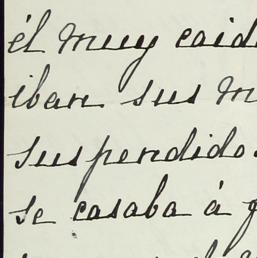 él muy caid
iban sus m
suspendido.
se casaba á